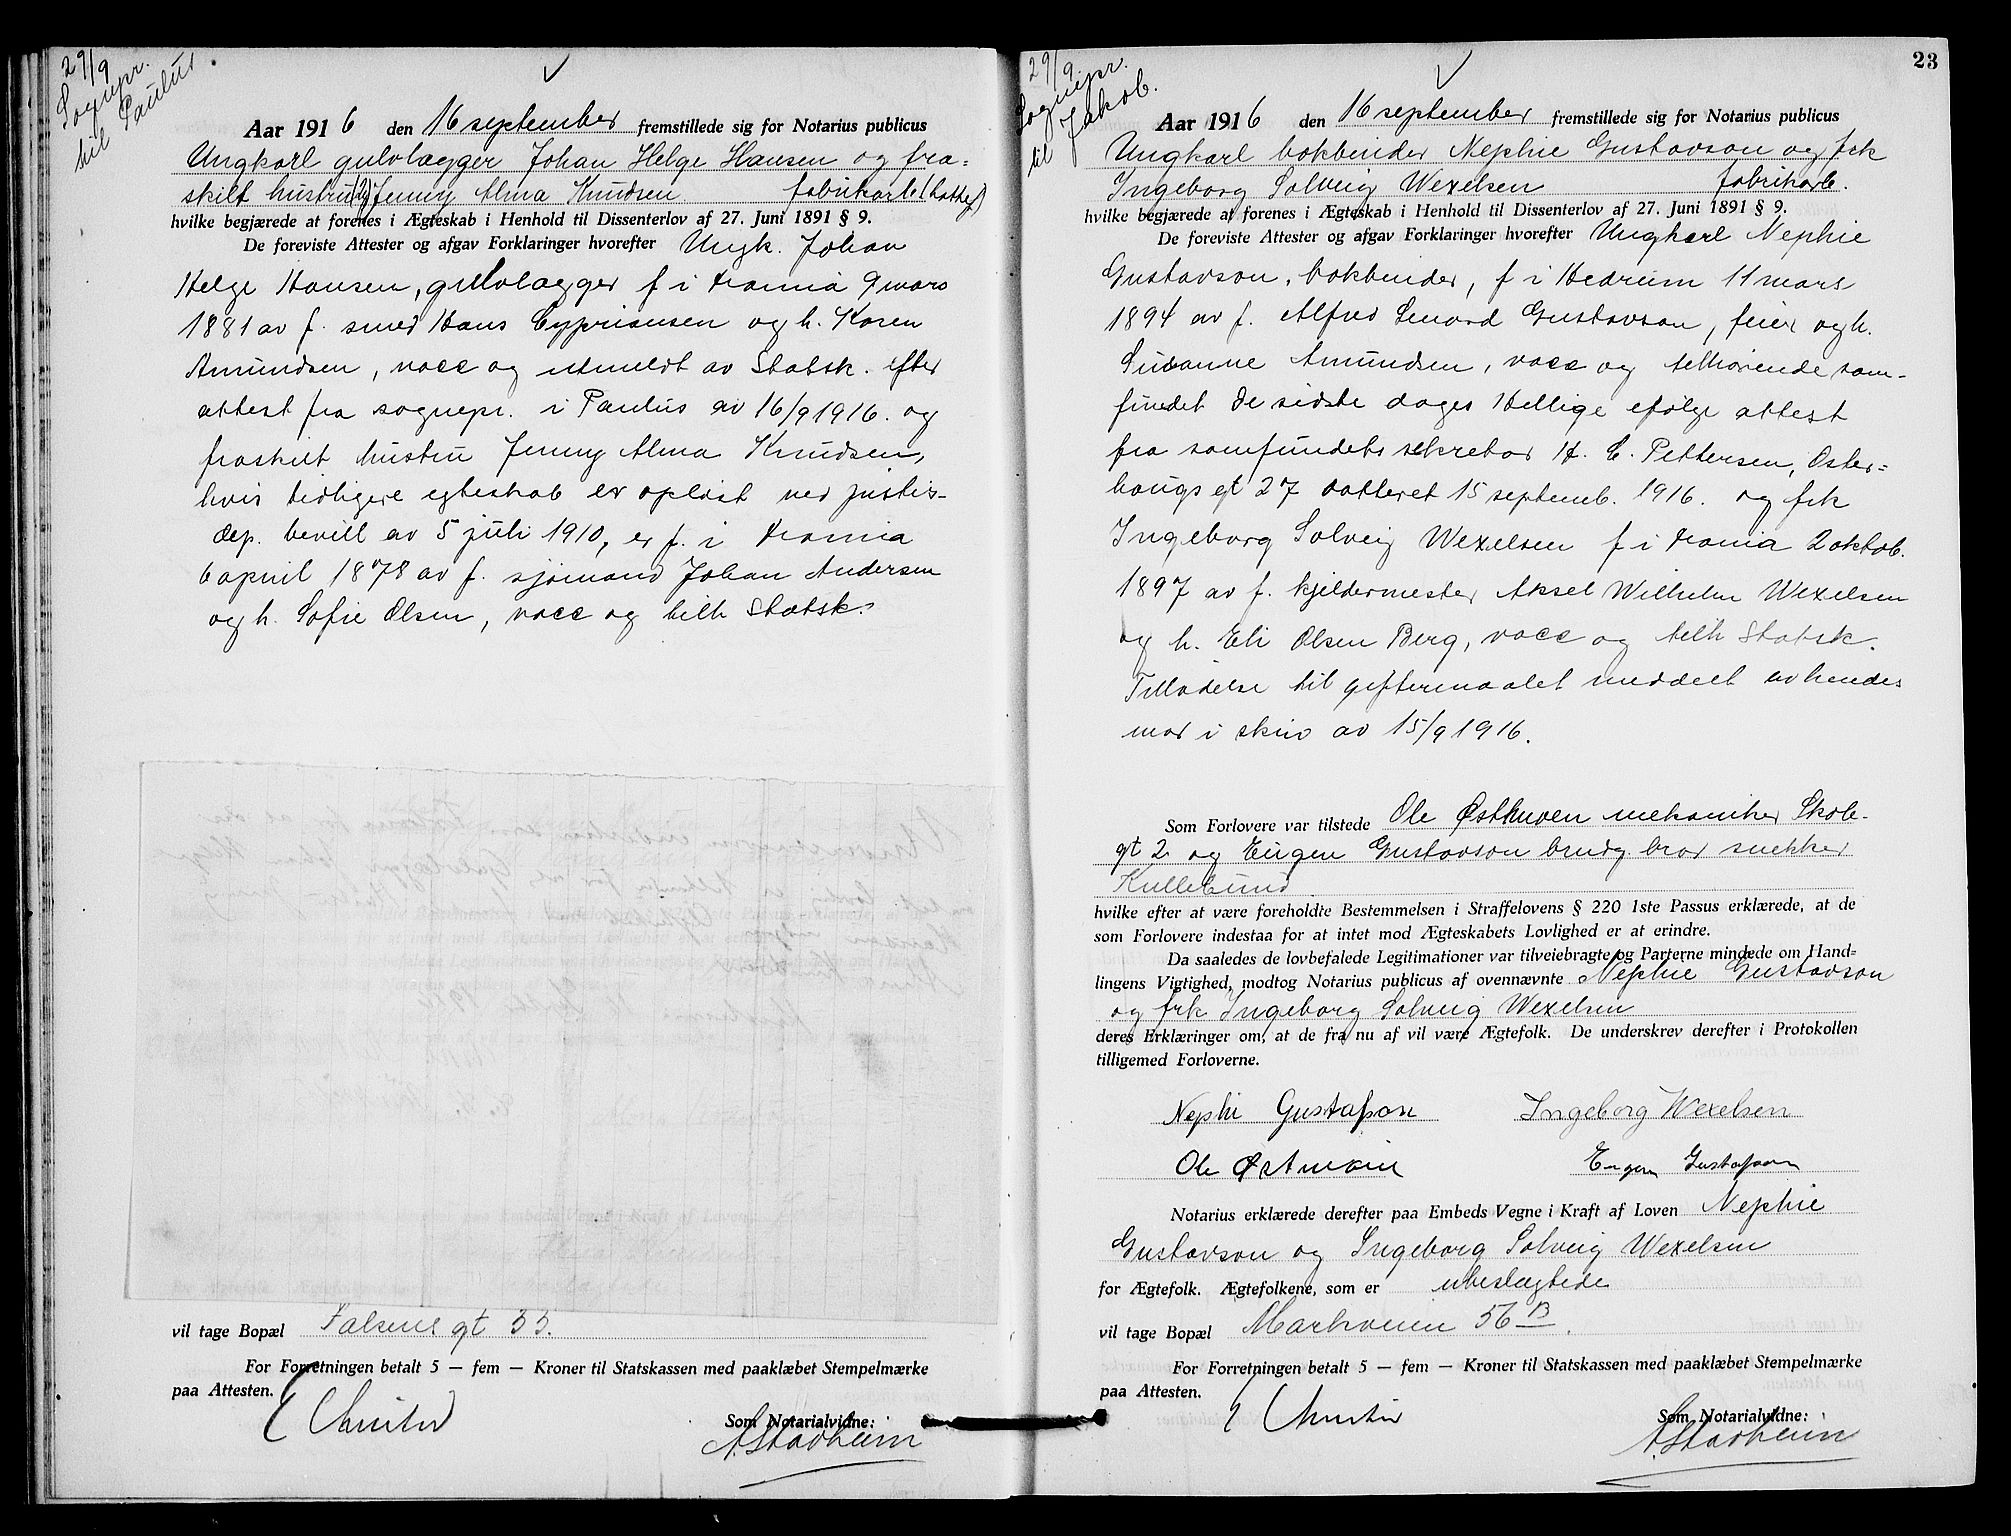 29/9
Sognepr.
til Paulus
Aar 1916 den 16 september fremstillede sig for Notarius publicus
Ungkarl gulvlægger Johan Helge Hansen og fra-
skilt hustru (2) Jenny Alma Knudsen fabrikarb.
hvilke begjærede at forenes i Ægteskab i Henhold til Dissenterlov af 27. Juni 1891 § 9.
De foreviste Attester og afgav Forklaringer hvorefter Ungk. Johan
Helge Hansen, gulvlægger f i Krania 9 mars
1881 av f. smed Hans Cypriansen og h. Karen
Amundsen, vacc og utmeldt av Statsk. efter
attest fra sognepr. i Paulus av 16/9 1916. og
fraskilt hustru Jenny Alma Knudsen,
hvis tidligere egteskab er opløst ved justis-
dep. bevill av 5 juli 1910, er f. i Krania
6 april 1878 av f. sjømand Johan Andersen
og h. Sofie Olsen, vacc og tilh Statsk.
vil tage Bopæl Falsens gt 33.
For Forretningen betalt 5 — fem — Kroner til Statskassen med paaklæbet Stempelmærke
paa Attesten.
Som Notarialvidne:
A. Stavheim
23
29/9
Sognepr.
til Jakob.
Aar 1916 den 16 september fremstillede sig for Notarius publicus
Ungkarl bokbinder Nephie Gustavson og frk
Ingeborg Solveig Wexelsen fabrikarb.
hvilke begjærede at forenes i Ægteskab i Henhold til Dissenterlov af 27. Juni 1891 § 9.
De foreviste Attester og afgav Forklaringer hvorefter Ungkarl Nephie
Gustavson, bokbinder, f i Hedrum 11 mars
1894 av f. Alfred Lenard Gustavson, feier og h.
Susanne Amundsen, vacc og tilhørende sam-
fundet de sidste dages Hellige efølge attest
fra samfundets sekretær H. C. Pettersen, Oster-
haugs gt 27 datteret 15 septemb. 1916. og frk
Ingeborg Solveig Wexelsen f i Krania 2 oktob.
1897 av f. kjeldermester Aksel Wilhelm Wexelsen
og h. Eli Olsen Berg, vacc og tilh Statsk.
Tilladelse til giftermaalet meddelt av hendes
mor i skriv av 15/9 1916.
Som Forlovere var tilstede Ole Østmoen mekaniker Skole-
gt 2 og Eugen Gustavson brudg bror snekker
Kullebund
hvilke efter at være foreholdte Bestemmelsen i Straffelovens § 220 1ste Passus erklærede, at de
som Forlovere indestaa for at intet mod Ægteskabets Lovlighed er at erindre.
Da saaledes de lovbefalede Legitimationer var tilveiebragte og Parterne mindede om Hand-
lingens Vigtighed, modtog Notarius publicus af ovennævnte Nephie Gustavson
og frk Ingeborg Solveig Wexelsen
deres Erklæringer om, at de fra nu af vil være Ægtefolk. De underskrev derefter i Protokollen
tilligemed Forloverne.
Nephi Gustafson Ingeborg Wexelsen
Ole Østmoen Eugen Gustafson
Notarius erklærede derefter paa Embeds Vegne i Kraft af Loven Nephie
Gustavson og Ingeborg Solveig Wexelsen
for Ægtefolk. Ægtefolkene, som er ubeslægtede
vil tage Bopæl Markveien 56 B.
For Forretningen betalt 5 — fem — Kroner til Statskassen med paaklæbet Stempelmærke
paa Attesten.
Som Notarialvidne:
A. Stavheim